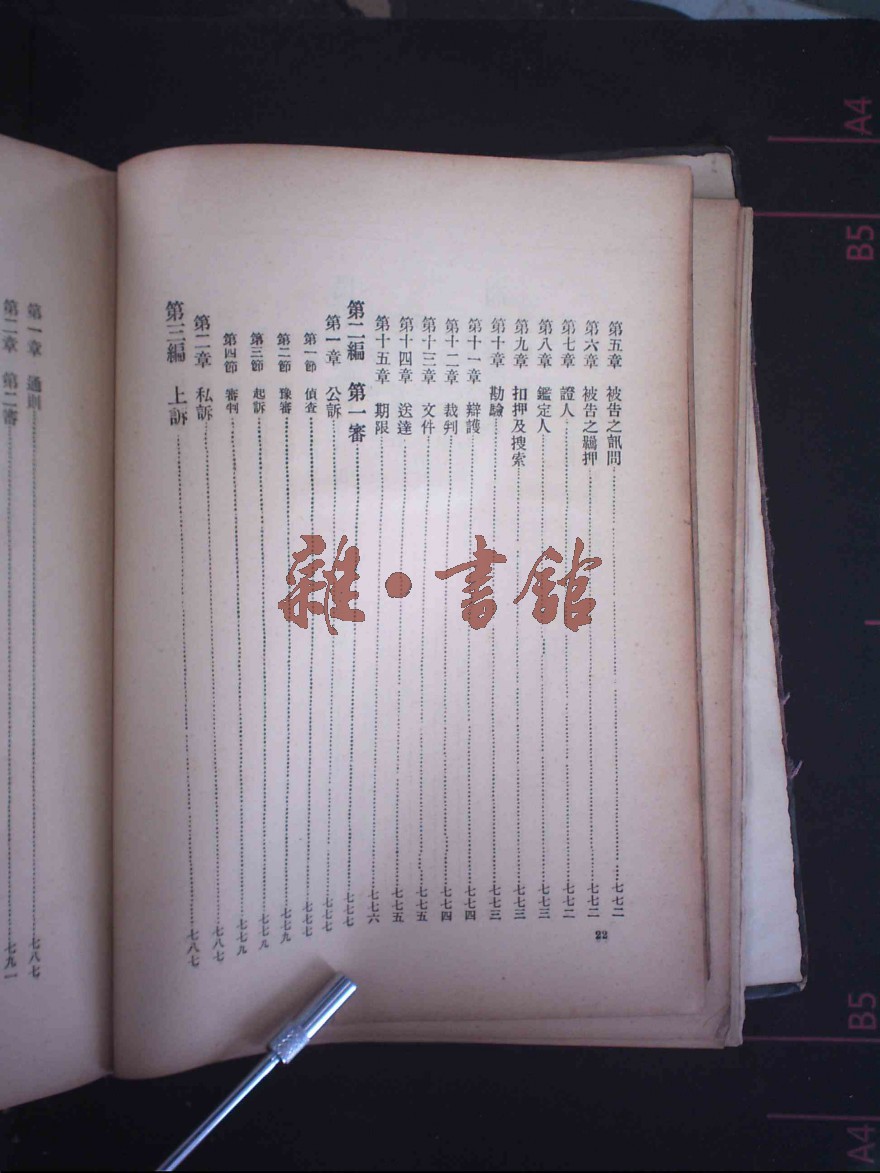 第五章 被告之訊問……七七二
第六章 被告之羈押……七七二
第七章 證人……七七二
第八章 鑑定人……七七三
第九章 扣押及搜索……七七三
第十章 勘驗……七七三
第十一章 辯護……七七四
第十二章 裁判……七七四
第十三章 文件……七七五
第十四章 送達……七七五
第十五章 期限……七七六
第二編 第一審……七七七
第一章 公訴……七七七
第一節 偵查……七七七
第二節 豫審……七七九
第三節 起訴……七七九
第四節 審判……七七九
第二章 私訴……七八七
第三編 上訴……七八七
22
第一章 通則……七八七
第二章 第二審……七九一
雜·書館
A4
B5
B5
A4